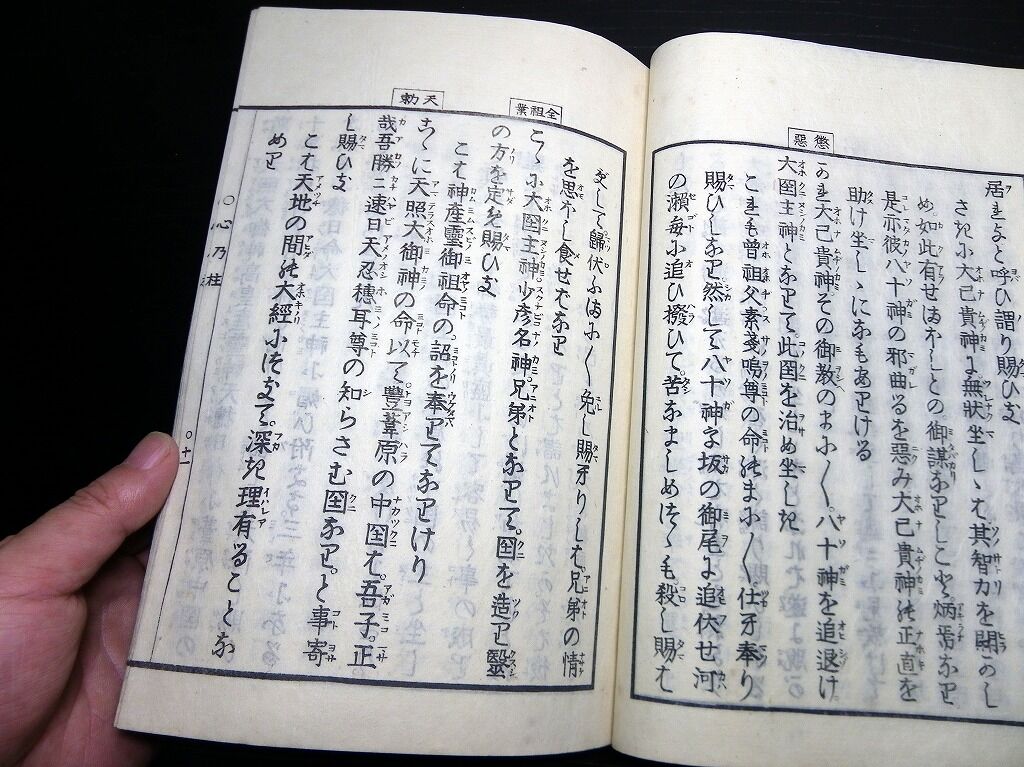 懲惡
居まよと呼ひ謂り賜ひき
さきに大己貴神よ無状坐しゝも其智力を開のし
め如此有せはやしとの御謀なりしこと炳焉なり
是亦彼八十神の邪曲るを惡み大己貴神の正直を
助け坐しゝにあもありける
かれ大己貴神その御教のまに〳〵八十神を追退け
大囯主神となりて此囯を治め坐しき
これも曾祖父素戔嗚尊の命のまに〳〵仕へ奉り
賜ひしなり然して八十神を坂の御尾に追伏せ河
の瀬毎に追ひ撥ひて。苦なましめつゝも殺し賜は
全祖業
天勅
すして歸伏ふまに〳〵免し賜へりしも。兄弟の情
を思ほし食せはなり
こゝに大囯主神少彦名神。兄弟となりて。囯を造り醫
の方を定め賜ひき
こは神産靈御祖命の詔を奉りてなりけり
こゝに天照大御神の命以て豊葦原の中囯は。吾子。正
哉吾勝々速日天忍穂耳尊の知らさむ囯なり。と事寄
し賜ひき
こは天地の間の大經にして。深き理有ることな
めり
○心乃柱
○十一